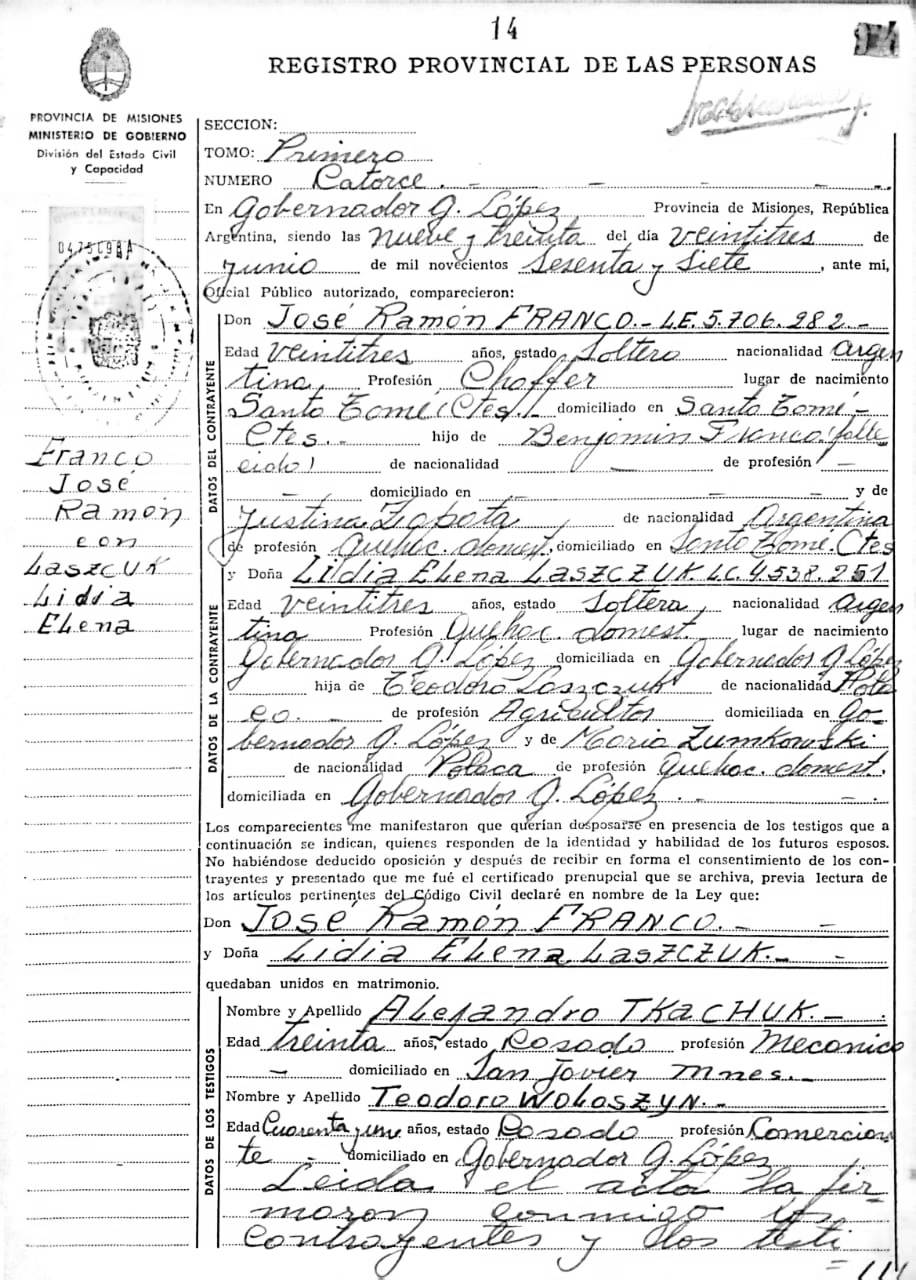 14
REGISTRO PROVINCIAL DE LAS PERSONAS
PROVINCIA DE MISIONES
MINISTERIO DE GOBIERNO
División del Estado Civil
y Capacidad
SECCION:
TOMO: Primero
NUMERO Catorce. - - - -
En Gobernador G. López Provincia de Misiones, República
Argentina, siendo las nueve y treinta del día veintitres de
junio de mil novecientos Sesenta y Siete, ante mi,
Oficial Público autorizado, comparecieron:
DATOS DEL CONTRAYENTE
Don José Ramón FRANCO.- L.E. 5.706.282.-
Edad veintitres años, estado Soltero nacionalidad Argen
tina, Profesión Choffer lugar de nacimiento
Santo Tomé (Ctes). domiciliado en Santo Tomé -
Ctes. - hijo de Benjamin Franco (falle
cido) de nacionalidad - de profesión -
- domiciliado en - - - y de
Justina Zapata de nacionalidad Argentina
de profesión Quehac. domest. domiciliado en Santo Tomé. Ctes
DATOS DE LA CONTRAYENTE
y Doña Lidia Elena LASZCZUK. L.C. 4.538.251
Edad veintitres años, estado Soltera, nacionalidad Argen
tina Profesión Quehac. domest. lugar de nacimiento
Gobernador G. López domiciliada en Gobernador G López
hija de Teodoro Laszczuk de nacionalidad Pola
co. - de profesión Agricultor domiciliada en Go-
bernador G. López y de Maria Zumkowski
de nacionalidad Polaca de profesión Quehac. domest.
domiciliada en Gobernador G. López. - -
Los comparecientes me manifestaron que querían desposarse en presencia de los testigos que a
continuación se indican, quienes responden de la identidad y habilidad de los futuros esposos.
No habiéndose deducido oposición y después de recibir en forma el consentimiento de los con-
trayentes y presentado que me fué el certificado prenupcial que se archiva, previa lectura de
los artículos pertinentes del Código Civil declaré en nombre de la Ley que:
Don José Ramón FRANCO. - -
y Doña Lidia Elena LASZCZUK. - -
quedaban unidos en matrimonio.
DATOS DE LOS TESTIGOS
Nombre y Apellido Alejandro TKACHUK. - .
Edad treinta años, estado Casado profesión Mecanico
- domiciliado en San Javier Mnes. -
Nombre y Apellido Teodoro WOLOSZYN. -
Edad Cuarenta y un años, estado Casado profesión Comercian
te - domiciliado en Gobernador G. López
Leida el acta la fir-
maron conmigo los
contrayentes y los testi
= ///
Franco
José
Ramón
con
Laszcuk
Lidia
Elena